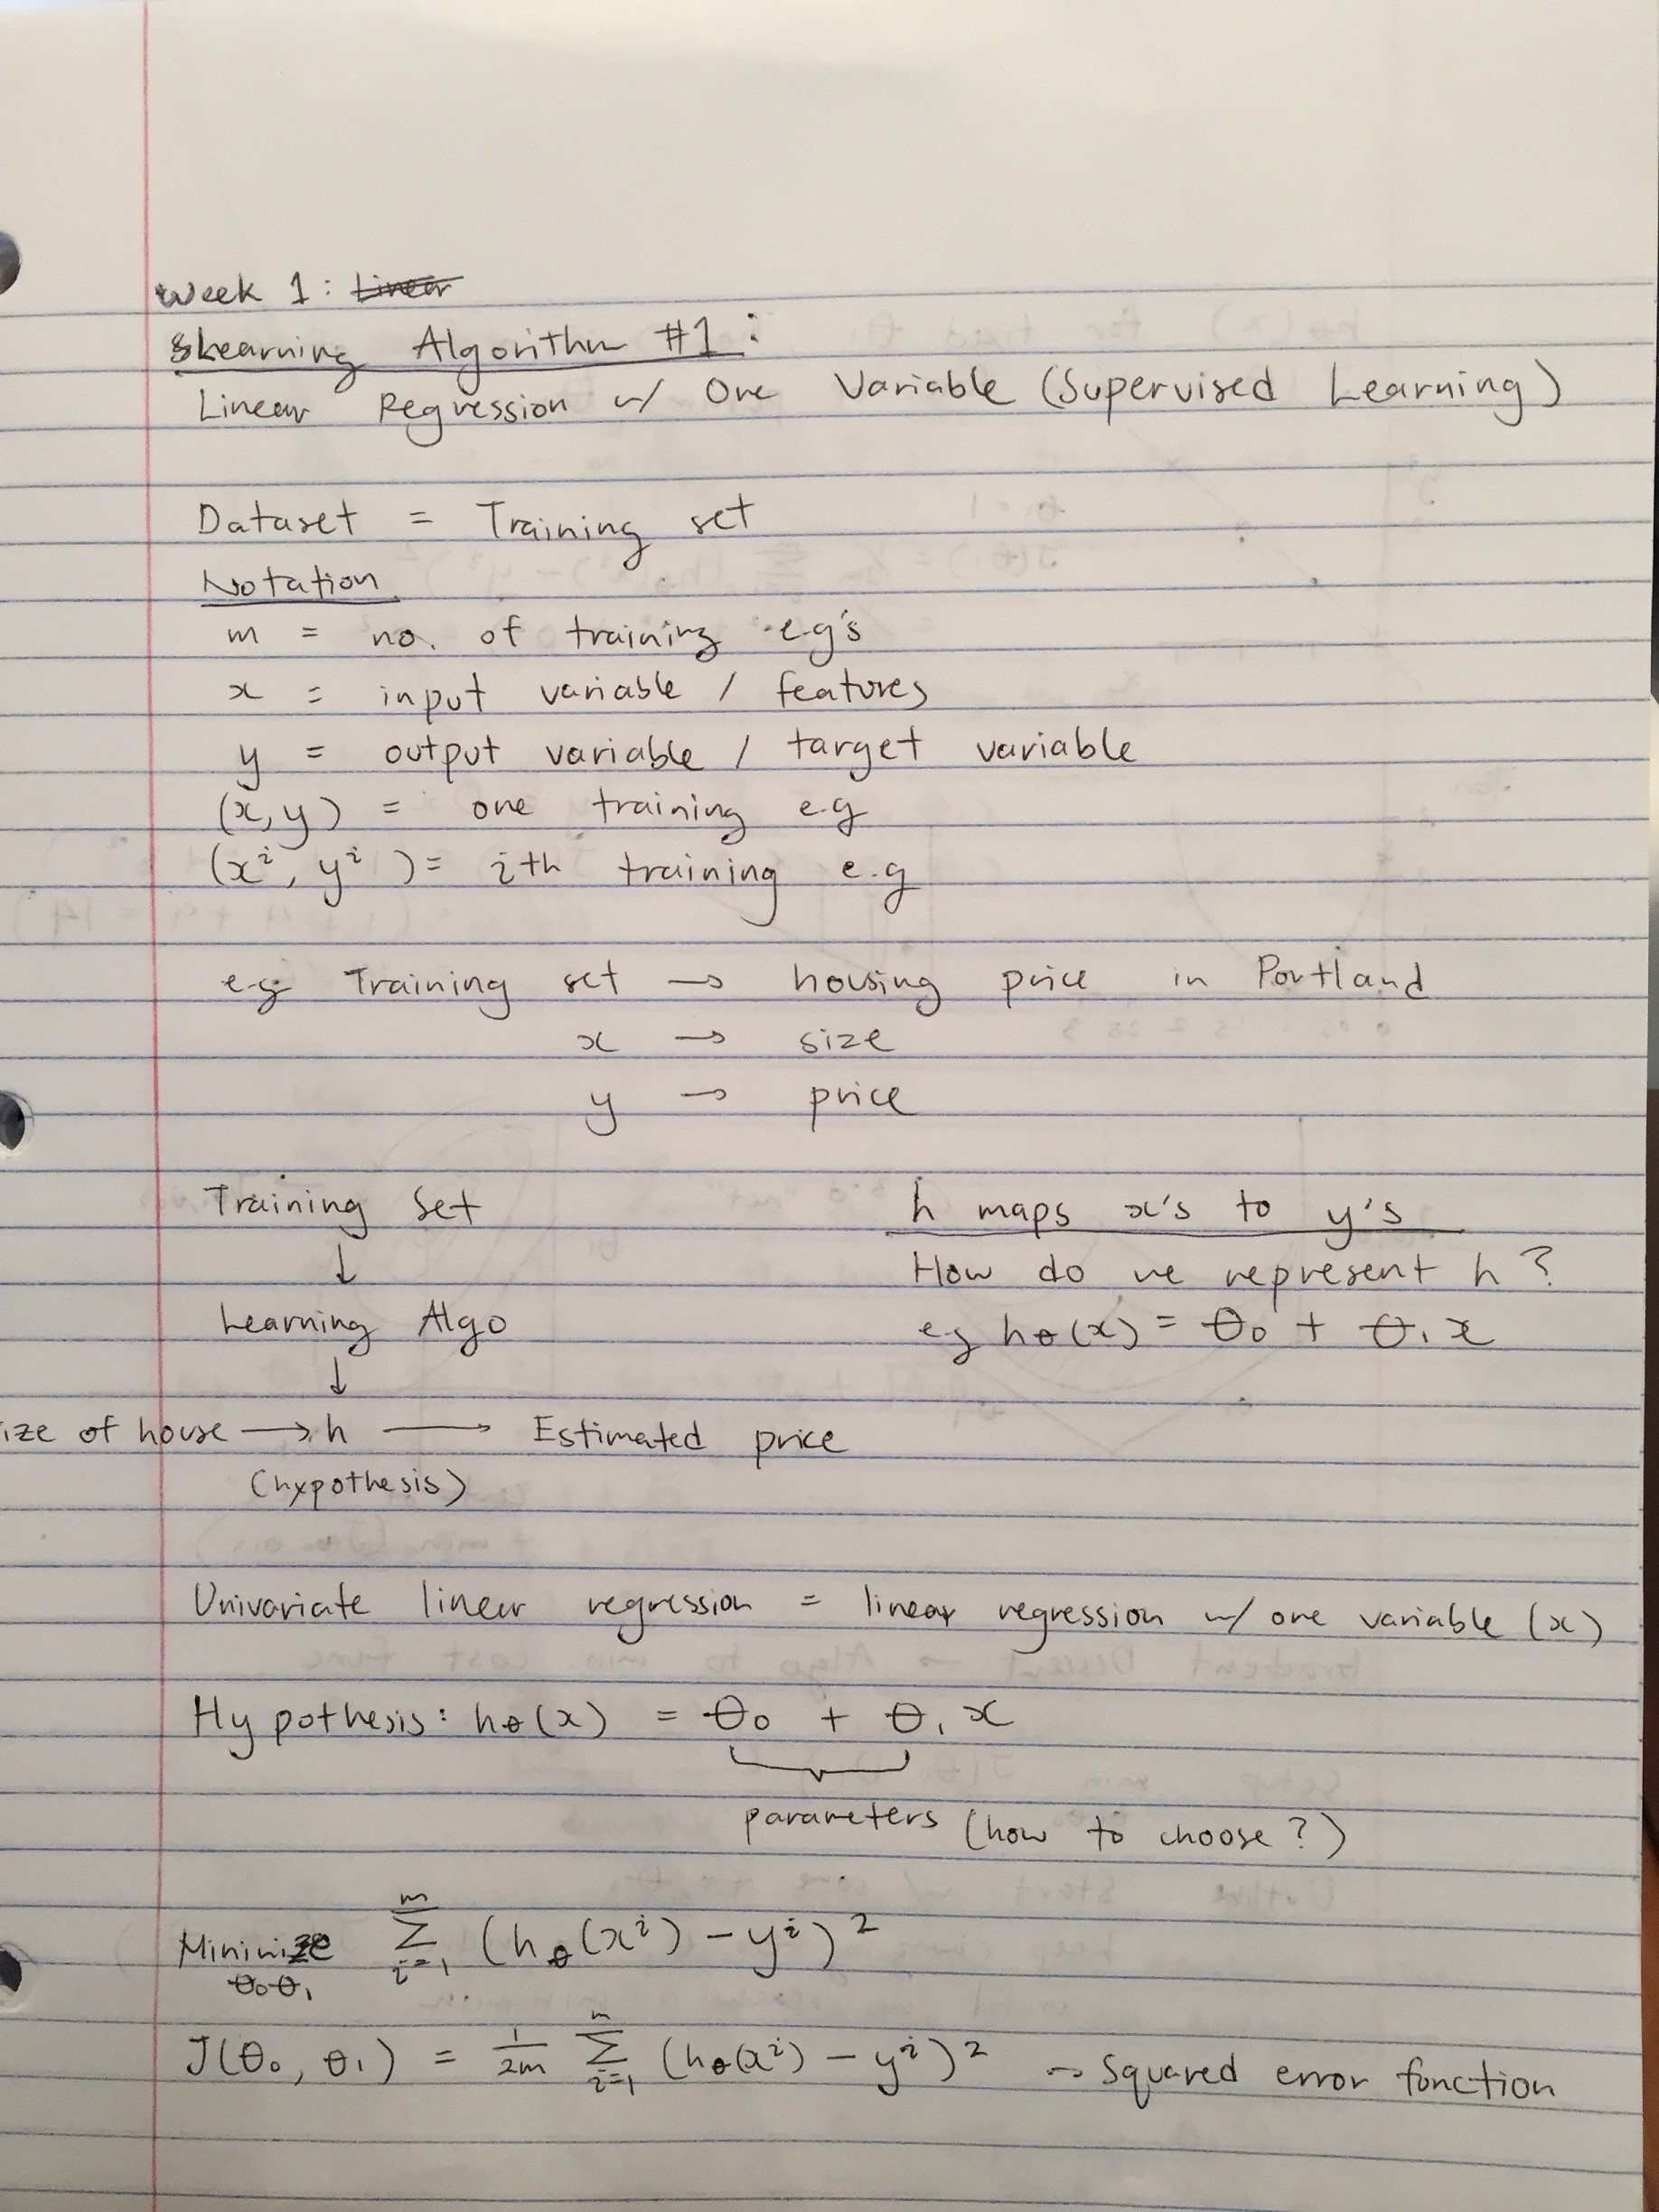 Week 1: Linear
Learning Algorithm #1:
Linear Regression w/ One Variable (Supervised Learning)
Dataset = Training set
Notation
m = no. of training e.g's
x = input variable / features
y = output variable / target variable
(x, y) = one training e.g
(xⁱ, yⁱ) = ith training e.g
e.g Training set → housing price in Portland
x → size
y → price
Training Set
↓
Learning Algo
↓
ize of house → h → Estimated price
(hypothesis)
h maps x's to y's
How do we represent h?
eg hθ(x) = θ₀ + θ₁x
Univariate linear regression = linear regression w/ one variable (x)
Hypothesis: hθ(x) = θ₀ + θ₁x
parameters (how to choose?)
Minimize θ₀θ₁ Σᵢ₌₁ᵐ (hθ(xⁱ) – yⁱ)²
J(θ₀, θ₁) = 1/2m Σᵢ₌₁ᵐ (hθ(xⁱ) – yⁱ)² → Squared error function